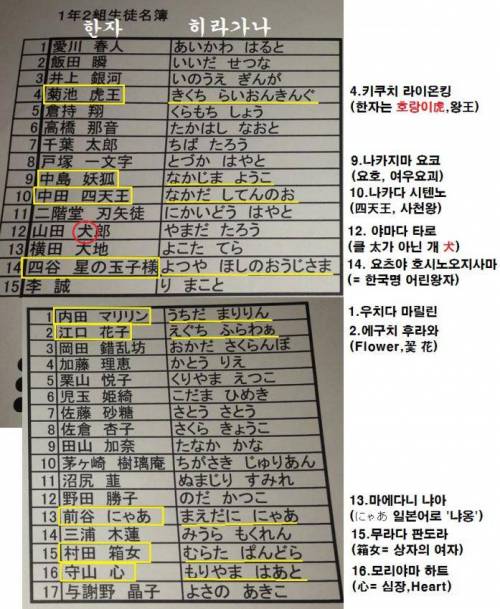 1年2組生徒名簿
한자 히라가나
1 愛川 春人 あいかわ はると
2 飯田 瞬 いいだ せつな
3 井上 銀河 いのうえ ぎんが
4 菊池 虎王 きくち らいおんきんぐ
5 倉持 翔 くらもち しょう
6 高橋 那音 たかはし なおと
7 千葉 太郎 ちば たろう
8 戸塚 一文字 とづか はやと
9 中島 妖狐 なかじま ようこ
10 中田 四天王 なかだ してんのお
11 二階堂 刃矢徒 にかいどう はやと
12 山田 犬郎 やまだ たろう
13 横田 大地 よこた てら
14 四谷 星の玉子様 よつや ほしのおうじさま
15 李 誠 り まこと
4.키쿠치 라이온킹
(한자는 호랑이虎,왕王)
9.나카지마 요코
(요호, 여우요괴)
10.나카다 시텐노
(四天王, 사천왕)
12. 야마다 타로
(클 太가 아닌 개 犬)
14. 요츠야 호시노오지사마
(= 한국명 어린왕자)
1 内田 マリリン うちだ まりりん
2 江口 花子 えぐち ふらわぁ
3 岡田 錯乱坊 おかだ さくらんぼ
4 加藤 理恵 かとう りえ
5 栗山 悦子 くりやま えつこ
6 児玉 姫綺 こだま ひめき
7 佐藤 砂糖 さとう さとう
8 佐倉 杏子 さくら きょうこ
9 田山 加奈 たなか かな
10 茅ヶ崎 樹璃庵 ちがさき じゅりあん
11 沼尻 菫 ぬまじり すみれ
12 野田 勝子 のだ かつこ
13 前谷 にゃあ まえだに にゃあ
14 三浦 木蓮 みうら もくれん
15 村田 箱女 むらた ぱんどら
16 守山 心 もりやま はあと
17 与謝野 晶子 よさの あきこ
1.우치다 마릴린
2.에구치 후라와
(Flower,꽃 花)
13.마에다니 냐아
(にゃあ 일본어로 '냐옹')
15.무라다 판도라
(箱女= 상자의 여자)
16.모리야마 하트
(心= 심장,Heart)